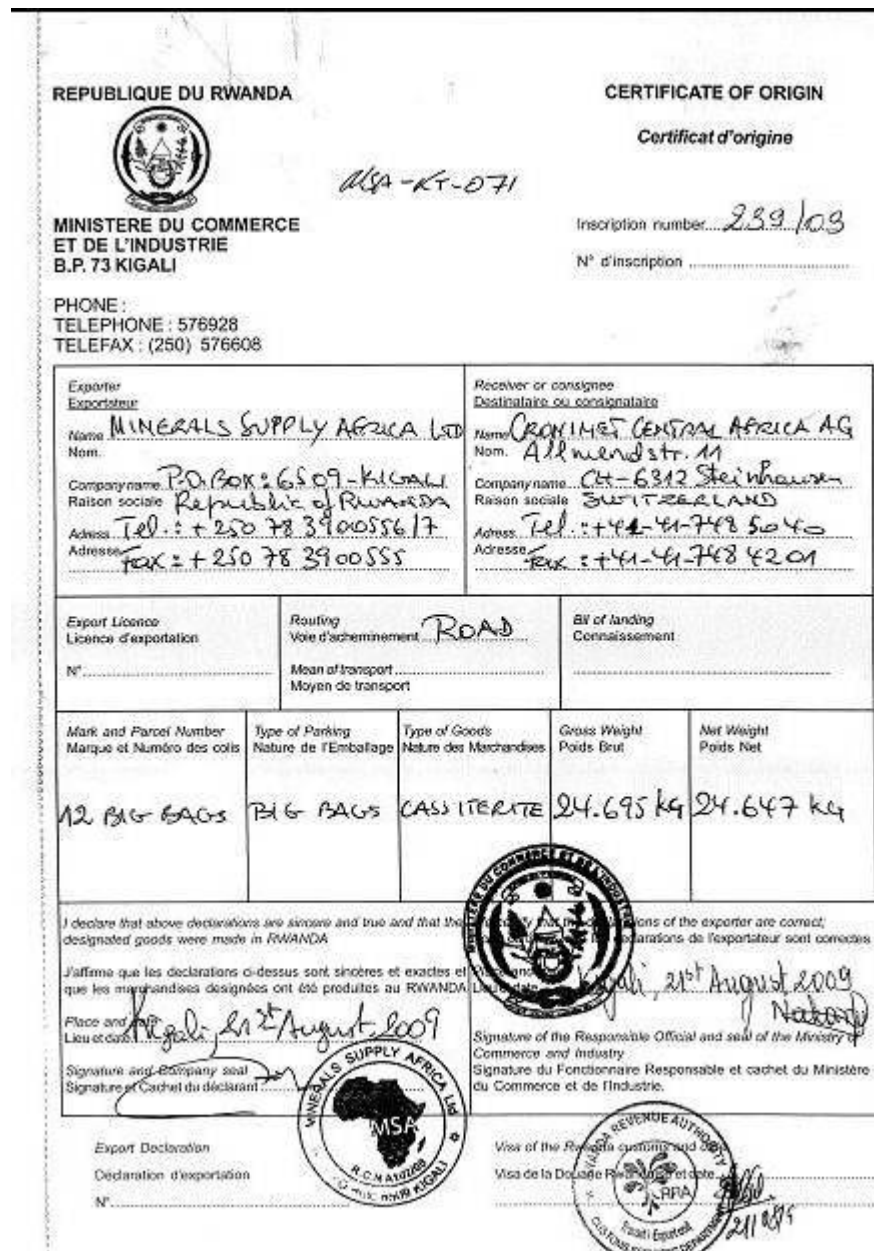 REPUBLIQUE DU RWANDA
CERTIFICATE OF ORIGIN
Certificat d'origine
MSA-KT-071
MINISTERE DU COMMERCE
ET DE L'INDUSTRIE
B.P. 73 KIGALI
Inscription number 239/09
N° d'inscription
PHONE :
TELEPHONE : 576928
TELEFAX : (250) 576608
Exporter
Exportateur
Name MINERALS SUPPLY AFRICA LTD
Nom.
Company name P.O. BOX : 6509 - KIGALI
Raison sociale Republic of RWANDA
Adress Tel. : +250 78 3900556/7
Adresse Fax : +250 78 3900555
Receiver or consignee
Destinataire ou consignataire
Name CRONIMET CENTRAL AFRICA AG
Nom. Allmendstr. 11
Company name CH-6312 Steinhausen
Raison sociale SWITZERLAND
Adress Tel. : +41-41-748 5040
Adresse Fax : +41-41-748 4201
Export Licence
Licence d'exportation
N°
Routing
Voie d'acheminement ROAD
Mean of transport
Moyen de transport
Bil of landing
Connaissement
Mark and Parcel Number
Marque et Numéro des colis
Type of Parking
Nature de l'Emballage
Type of Goods
Nature des Marchandises
Gross Weight
Poids Brut
Net Weight
Poids Net
12 BIG BAGS
BIG BAGS
CASSITERITE
24.695 kg
24.647 kg
I declare that above declarations are sincere and true and that the
designated goods were made in RWANDA
J'affirme que les declarations ci-dessus sont sincères et exactes et
que les marchandises designées ont été produites au RWANDA
Place and
Lieu et date Kigali, 21st August 2009
Signature and Company seal
Signature et Cachet du déclarant
MINERALS SUPPLY AFRICA Ltd
MSA
KIGALI
MINISTERE DU COMMERCE ET DE L'INDUSTRIE
that the declarations of the exporter are correct;
declarations de l'exportateur sont correctes
Kigali, 21st August 2009
Signature of the Responsible Official and seal of the Ministry of
Commerce and Industry
Signature du Fonctionnaire Responsable et cachet du Ministère
du Commerce et de l'Industrie.
Export Declaration
Déclaration d'exportation
N°
Visa of the Rwanda customs and
Visa de la Douane et date
RWANDA REVENUE AUTHORITY
RRA